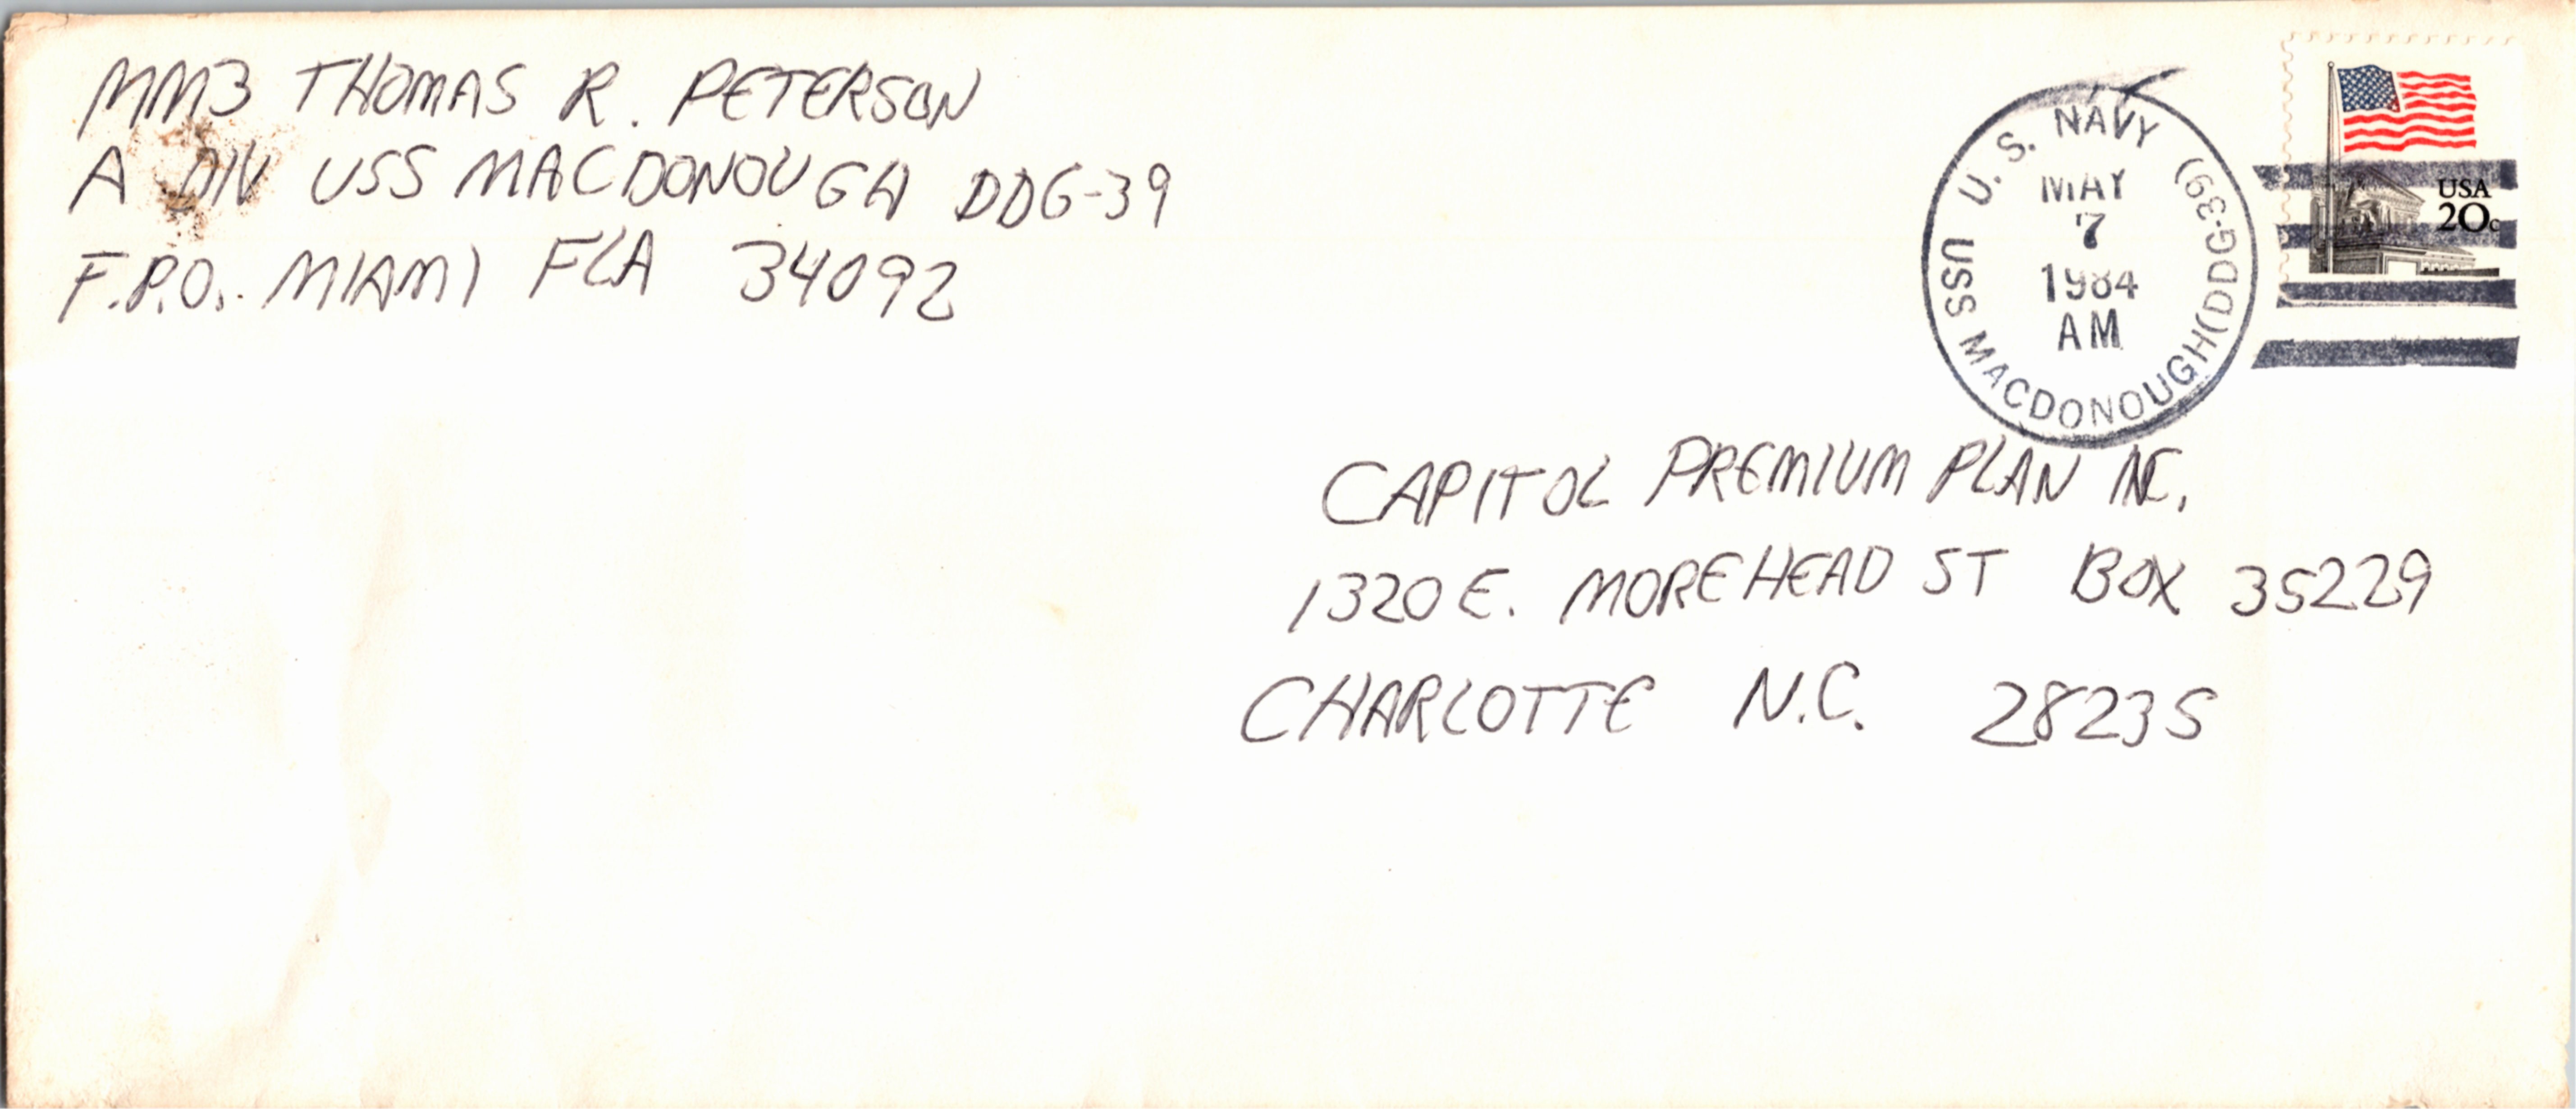 MM3 THOMAS R. PETERSON
A DIV USS MACDONOUGH DDG-39
F.P.O. MIAMI FLA 34092
U.S. NAVY
USS MACDONOUGH (DDG-39)
MAY
7
1984
AM
USA
20c
CAPITOL PREMIUM PLAN INC.
1320 E. MOREHEAD ST BOX 35229
CHARLOTTE N.C. 28235